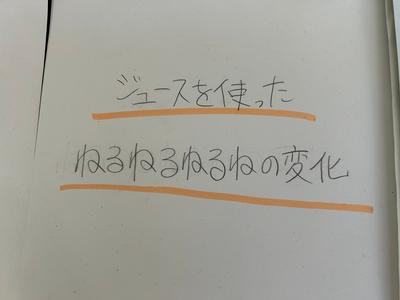 ジュースを使った
ねるねるねるねの変化